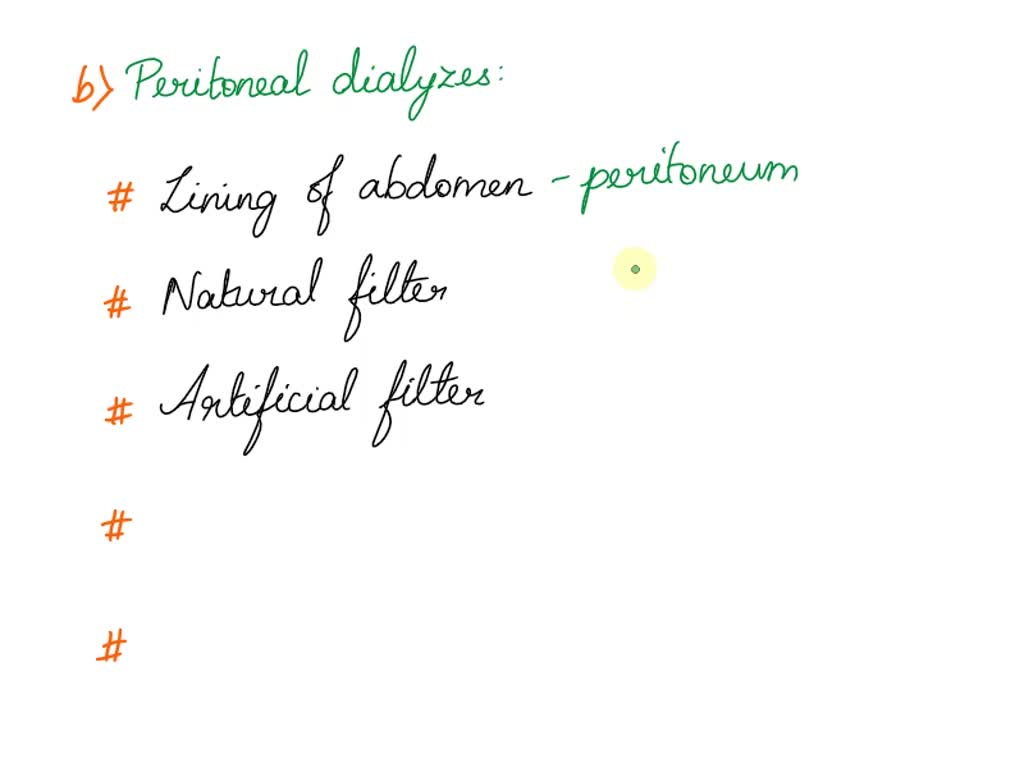 b) Peritoneal dialyzes:
# Lining of abdomen - peritoneum
# Natural filter
# Artificial filter
#
#